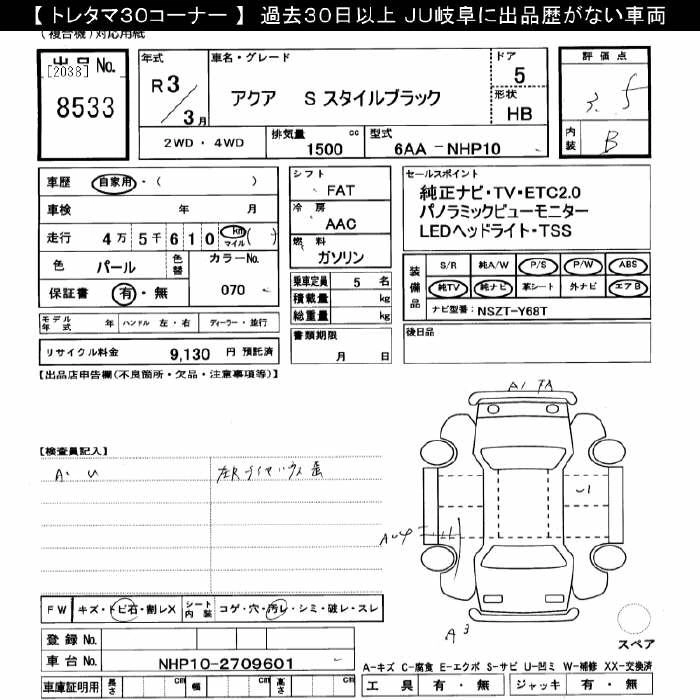 【 トレタマ30コーナー 】 過去30日以上 JU岐阜に出品歴がない車両
(複合機)対応用紙
出品 No.
[2038]
8533
年式
R3/3月
車名・グレード
アクア S スタイルブラック
ドア
5
形状
HB
評価点
3.5
内装
B
2WD ・ 4WD
排気量 cc
1500
型式
6AA -NHP10
車歴 自家用・( )
車検 年 月
走行 4万 5千 6 1 0 km マイル ( )
色 パール 色替 カラーNo.
保証書 有・無 070
シフト
FAT
冷房
AAC
燃料
ガソリン
乗車定員 5 名
積載量 kg
総重量 kg
セールスポイント
純正ナビ・TV・ETC2.0
パノラミックビューモニター
LEDヘッドライト・TSS
装備品
S/R 純A/W P/S P/W ABS
純TV 純ナビ 革シート 外ナビ エアB
ナビ型番: NSZT-Y68T
モデル年式 年 ハンドル 左・右 ディーラー・並行
リサイクル料金 9,130 円 預託済
書類期限
月 日
後日品
【出品店申告欄(不良箇所・欠品・注意事項等)】
A1
【検査員記入】
A・U
U1
A3
FW キズ・トビ石・割レX シート内装 コゲ・穴・汚レ・シミ・破レ・スレ
登録 No.
車台 No. NHP10-2709601
車庫証明用 長さ cm 幅 cm 高さ cm
スペア
A-キズ C-腐食 E-エクボ S-サビ U-凹ミ W-補修 XX-交換済
工具 有・無 ジャッキ 有・無